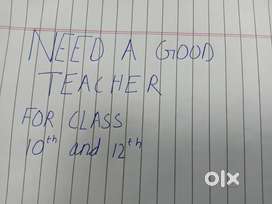 NEED A GOOD
TEACHER
FOR CLASS
10th and 12th
olx